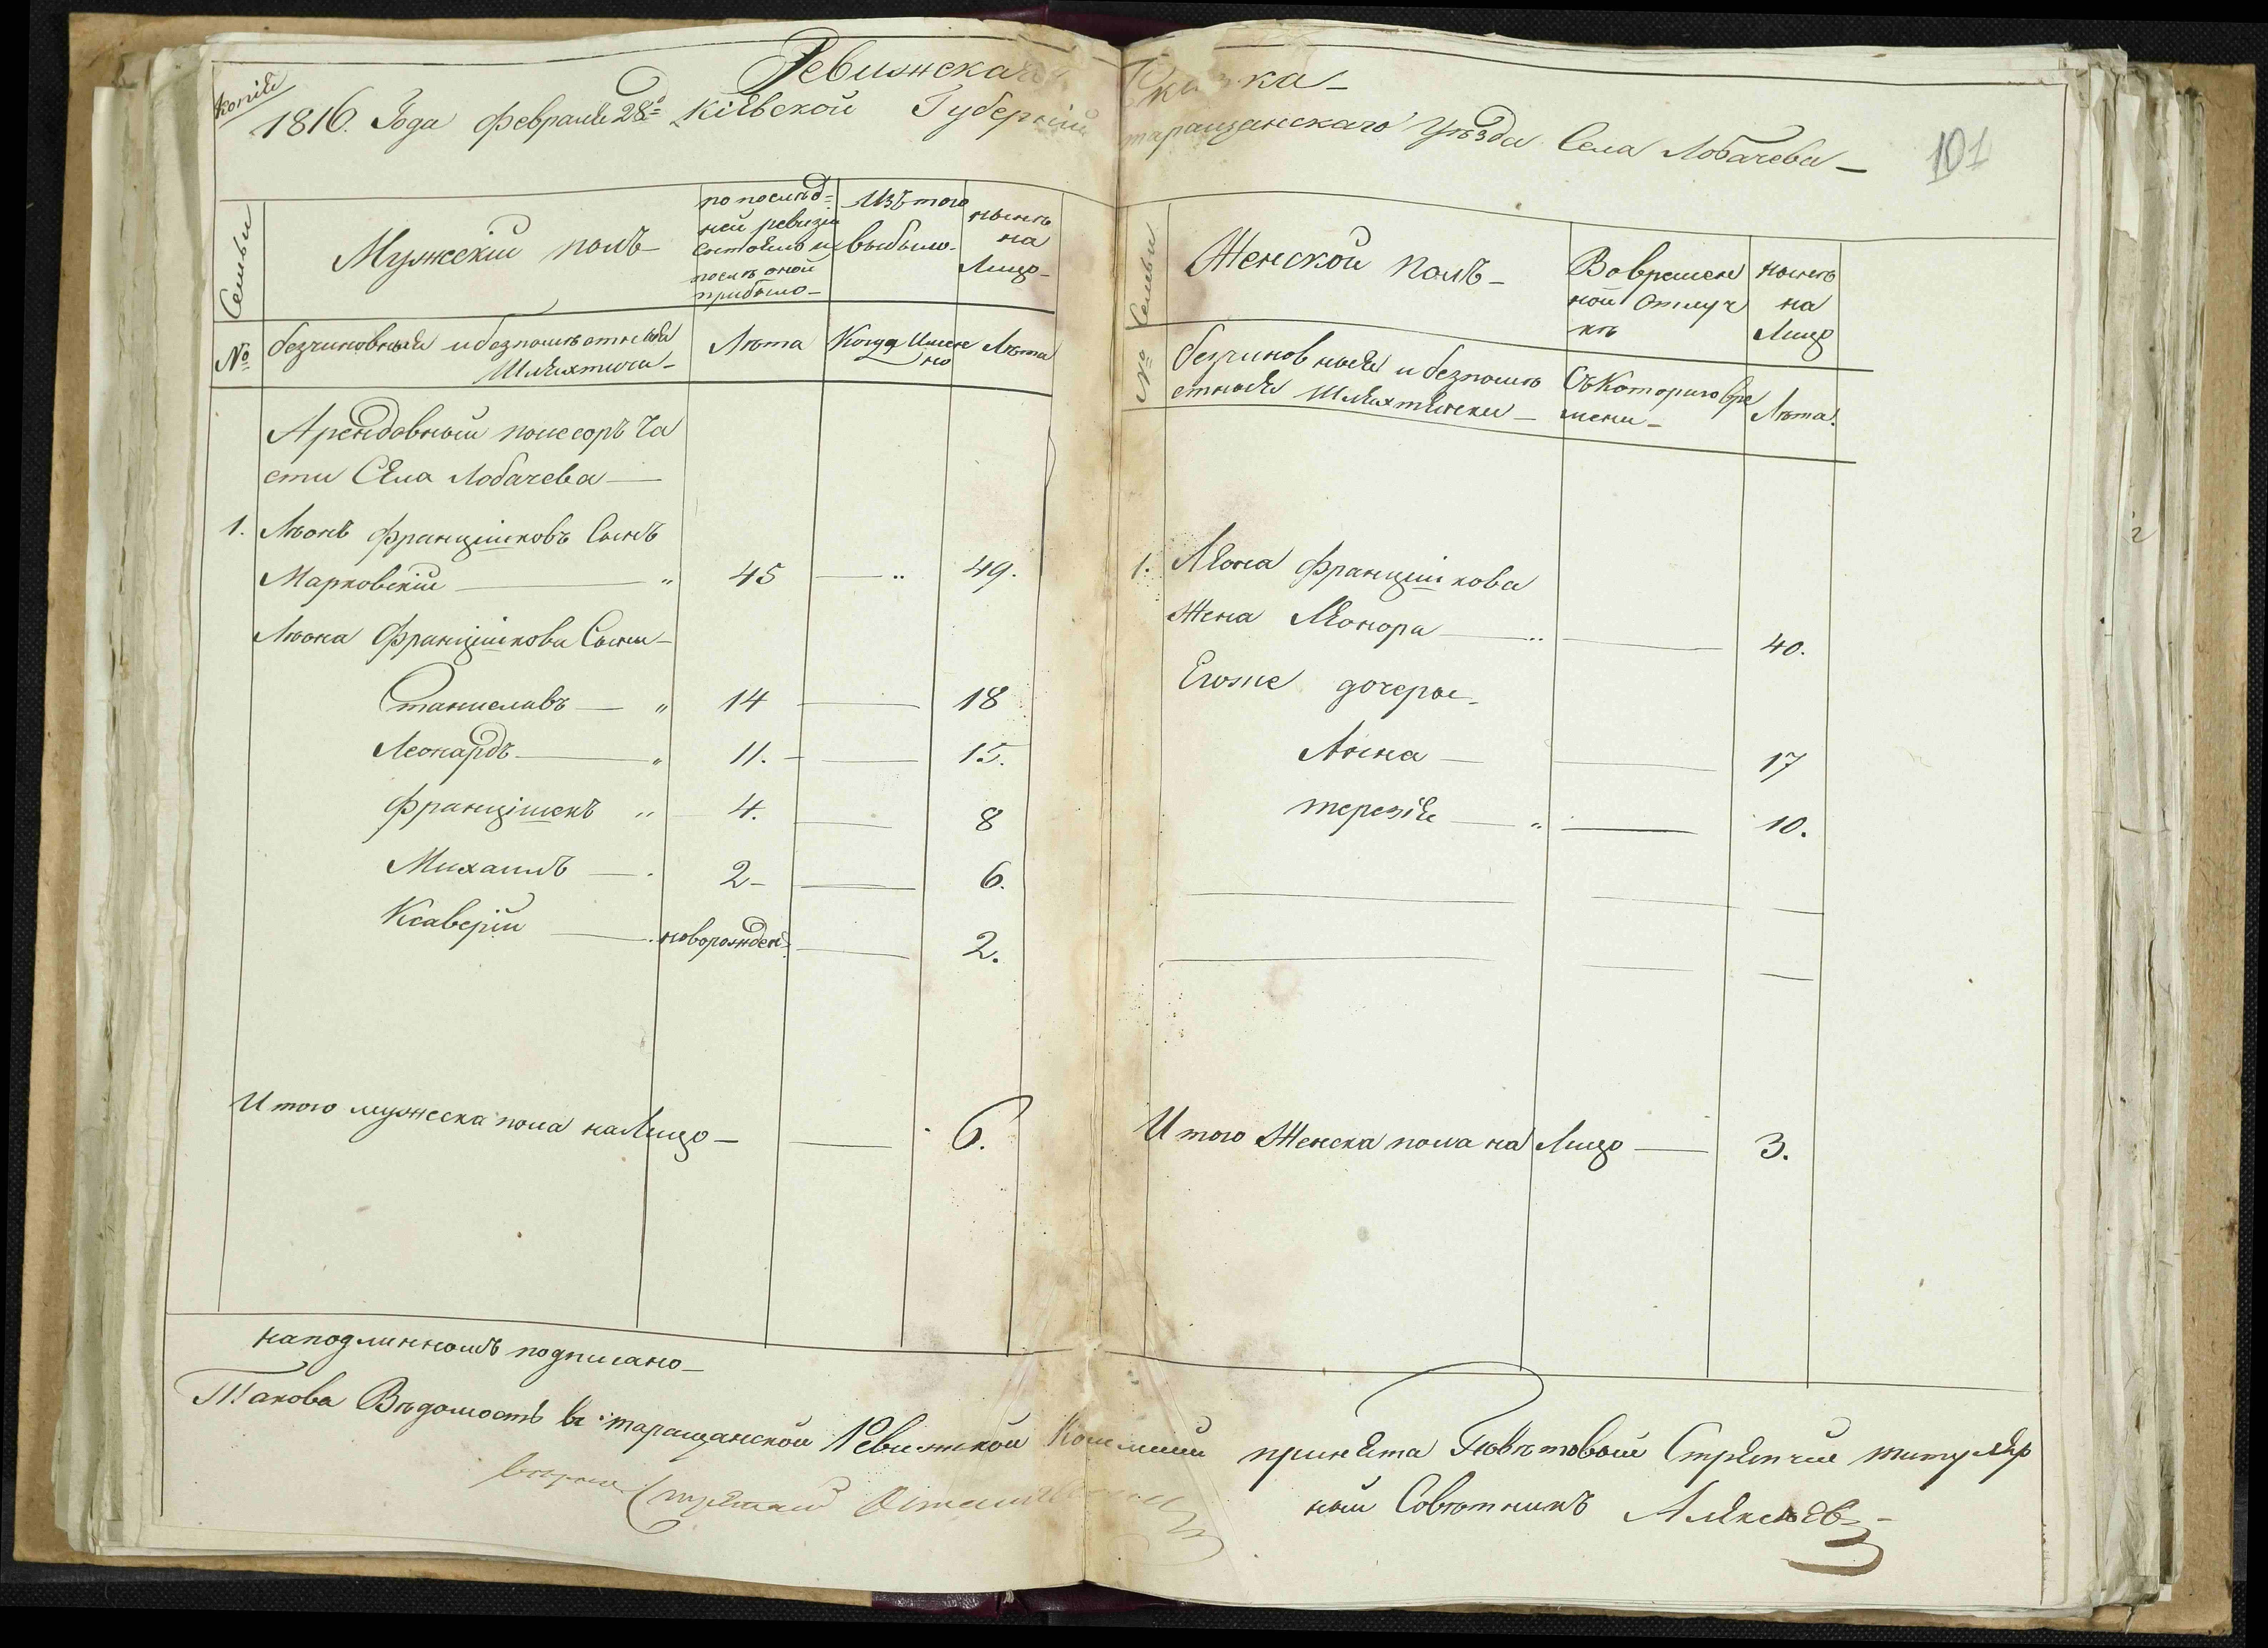 копія
Ревижская Сказка
1816. Года февраля 28д. Кіевской Губерніи таращанскаго Уѣзда Села Лобачева
101
Семьи
Мужескій полъ
по послѣд-
ней ревизіи
состояло и
послѣ оной
прибыло
Изъ того
выбыло
нынѣ
на
Лицо
№
безчиновныя и безпомѣстныя
Шляхтичи
Лѣта
Когда Имен
но
Лѣта
Арендовный посесоръ Ча
сти Села Лобачева
1. Лѣонъ Францишковъ Сынъ
Марковскій 45 49.
Лѣона Францишкова Сыны
Станиславъ 14 18
Леонардъ 11. 15.
Францішекъ 4. 8
Михаилъ 2 6.
Ксаверій новорожден. 2.
Итого мужеска пола на Лицо 6.
Семьи
Женской полъ
Вовремен
ной Отлуч
кѣ
нынѣ
на
Лицо
№
безчиновныя и безпомѣ
стныя Шляхтянки
Съ Котораго вре
мени
Лѣта.
1. Лѣона Францишкова
Жена Леонора 40.
Егоже дочеры
Анна 17
терезія 10.
Итого Женска пола на Лицо 3.
на подлинномъ подписано
Такова Вѣдомость въ таращанской Ревижкой Комисіи принята Повѣтовый Стряпчій титуляр
ный Совѣтникъ Алексѣев